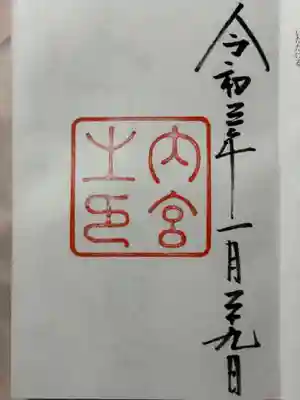 令和三年十一月二十九日
内宮
之印